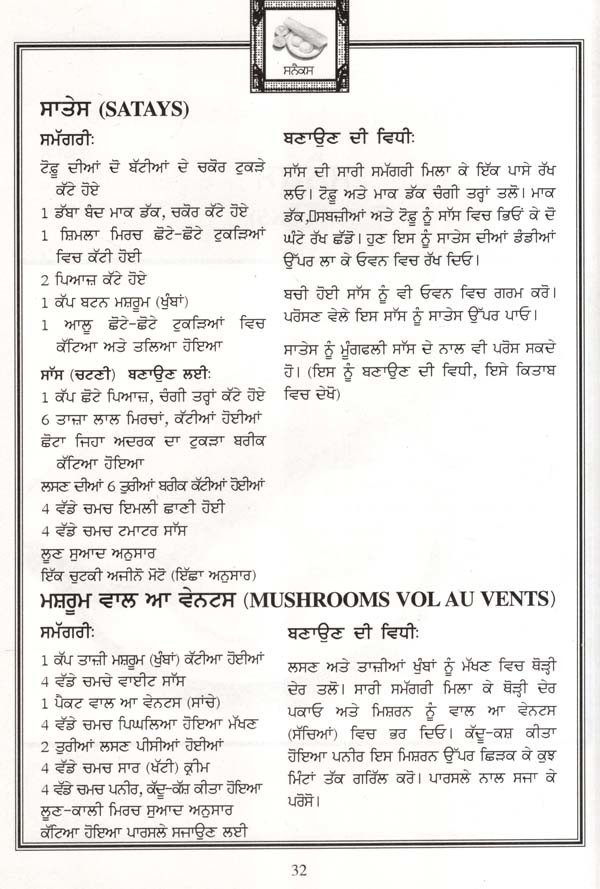 ਸਨੈਕਸ
ਸਾਤੇਸ (SATAYS)
ਸਮੱਗਰੀ:
ਟੋਫੂ ਦੀਆਂ ਦੋ ਬੱਟੀਆਂ ਦੇ ਚਕੋਰ ਟੁਕੜੇ
ਕੱਟੇ ਹੋਏ
1 ਡੱਬਾ ਬੰਦ ਮਾਕ ਡੱਕ, ਚਕੋਰ ਕੱਟੇ ਹੋਏ
1 ਸ਼ਿਮਲਾ ਮਿਰਚ ਛੋਟੇ-ਛੋਟੇ ਟੁਕੜਿਆਂ
ਵਿਚ ਕੱਟੀ ਹੋਈ
2 ਪਿਆਜ਼ ਕੱਟੇ ਹੋਏ
1 ਕੱਪ ਬਟਨ ਮਸ਼ਰੂਮ (ਖੁੰਬਾਂ)
1 ਆਲੂ ਛੋਟੇ-ਛੋਟੇ ਟੁਕੜਿਆਂ ਵਿਚ
ਕੱਟਿਆ ਅਤੇ ਤਲਿਆ ਹੋਇਆ
ਸਾੱਸ (ਚਟਣੀ) ਬਣਾਉਣ ਲਈ:
1 ਕੱਪ ਛੋਟੇ ਪਿਆਜ਼, ਚੰਗੀ ਤਰ੍ਹਾਂ ਕੱਟੇ ਹੋਏ
6 ਤਾਜ਼ਾ ਲਾਲ ਮਿਰਚਾਂ, ਕੱਟੀਆਂ ਹੋਈਆਂ
ਛੋਟਾ ਜਿਹਾ ਅਦਰਕ ਦਾ ਟੁਕੜਾ ਬਰੀਕ
ਕੱਟਿਆ ਹੋਇਆ
ਲਸਣ ਦੀਆਂ 6 ਤੁਰੀਆਂ ਬਰੀਕ ਕੱਟੀਆਂ ਹੋਈਆਂ
4 ਵੱਡੇ ਚਮਚ ਇਮਲੀ ਛਾਣੀ ਹੋਈ
4 ਵੱਡੇ ਚਮਚ ਟਮਾਟਰ ਸਾੱਸ
ਲੂਣ ਸੁਆਦ ਅਨੁਸਾਰ
ਇੱਕ ਚੁਟਕੀ ਅਜੀਨੋ ਮੋਟੋ (ਇੱਛਾ ਅਨੁਸਾਰ)
ਬਣਾਉਣ ਦੀ ਵਿਧੀ:
ਸਾੱਸ ਦੀ ਸਾਰੀ ਸਮੱਗਰੀ ਮਿਲਾ ਕੇ ਇੱਕ ਪਾਸੇ ਰੱਖ
ਲਓ। ਟੋਫੂ ਅਤੇ ਮਾਕ ਡੱਕ ਚੰਗੀ ਤਰ੍ਹਾਂ ਤਲੋ। ਮਾਕ
ਡੱਕ,ਸਬਜ਼ੀਆਂ ਅਤੇ ਟੋਫੂ ਨੂੰ ਸਾੱਸ ਵਿਚ ਭਿਓਂ ਕੇ ਦੋ
ਘੰਟੇ ਰੱਖ ਛੱਡੋ। ਹੁਣ ਇਸ ਨੂੰ ਸਾਤੇਸ ਦੀਆਂ ਡੰਡੀਆਂ
ਉੱਪਰ ਲਾ ਕੇ ਓਵਨ ਵਿਚ ਰੱਖ ਦਿਓ।
ਬਚੀ ਹੋਈ ਸਾੱਸ ਨੂੰ ਵੀ ਓਵਨ ਵਿਚ ਗਰਮ ਕਰੋ।
ਪਰੋਸਣ ਵੇਲੇ ਇਸ ਸਾੱਸ ਨੂੰ ਸਾਤੇਸ ਉੱਪਰ ਪਾਓ।
ਸਾਤੇਸ ਨੂੰ ਮੂੰਗਫਲੀ ਸਾੱਸ ਦੇ ਨਾਲ ਵੀ ਪਰੋਸ ਸਕਦੇ
ਹੋ। (ਇਸ ਨੂੰ ਬਣਾਉਣ ਦੀ ਵਿਧੀ, ਇਸੇ ਕਿਤਾਬ
ਵਿਚ ਦੇਖੋ)
ਮਸ਼ਰੂਮ ਵਾਲ ਆ ਵੇਨਟਸ (MUSHROOMS VOL AU VENTS)
ਸਮੱਗਰੀ:
1 ਕੱਪ ਤਾਜ਼ੀ ਮਸ਼ਰੂਮ (ਖੁੰਬਾਂ) ਕੱਟੀਆ ਹੋਈਆਂ
4 ਵੱਡੇ ਚਮਚੇ ਵਾਈਟ ਸਾੱਸ
1 ਪੈਕਟ ਵਾਲ ਆ ਵੇਨਟਸ (ਸਾਂਚੇ)
4 ਵੱਡੇ ਚਮਚ ਪਿਘਲਿਆ ਹੋਇਆ ਮੱਖਣ
2 ਤੁਰੀਆਂ ਲਸਣ ਪੀਸੀਆਂ ਹੋਈਆਂ
4 ਵੱਡੇ ਚਮਚ ਸਾਰ (ਖੱਟੀ) ਕ੍ਰੀਮ
4 ਵੱਡੇ ਚਮਚ ਪਨੀਰ, ਕੱਦੂ-ਕੱਸ਼ ਕੀਤਾ ਹੋਇਆ
ਲੂਣ-ਕਾਲੀ ਮਿਰਚ ਸੁਆਦ ਅਨੁਸਾਰ
ਕੱਟਿਆ ਹੋਇਆ ਪਾਰਸਲੇ ਸਜਾਉਣ ਲਈ
ਬਣਾਉਣ ਦੀ ਵਿਧੀ:
ਲਸਣ ਅਤੇ ਤਾਜ਼ੀਆਂ ਖੁੰਬਾਂ ਨੂੰ ਮੱਖਣ ਵਿਚ ਥੋੜ੍ਹੀ
ਦੇਰ ਤਲੋ। ਸਾਰੀ ਸਮੱਗਰੀ ਮਿਲਾ ਕੇ ਥੋੜ੍ਹੀ ਦੇਰ
ਪਕਾਓ ਅਤੇ ਮਿਸ਼ਰਨ ਨੂੰ ਵਾਲ ਆ ਵੇਨਟਸ
(ਸੱਚਿਆਂ) ਵਿਚ ਭਰ ਦਿਓ। ਕੱਦੂ-ਕਸ਼ ਕੀਤਾ
ਹੋਇਆ ਪਨੀਰ ਇਸ ਮਿਸ਼ਰਨ ਉੱਪਰ ਛਿੜਕ ਕੇ ਕੁਝ
ਮਿੰਟਾਂ ਤੱਕ ਗਰਿੱਲ ਕਰੋ। ਪਾਰਸਲੇ ਨਾਲ ਸਜਾ ਕੇ
ਪਰੋਸੋ।
32